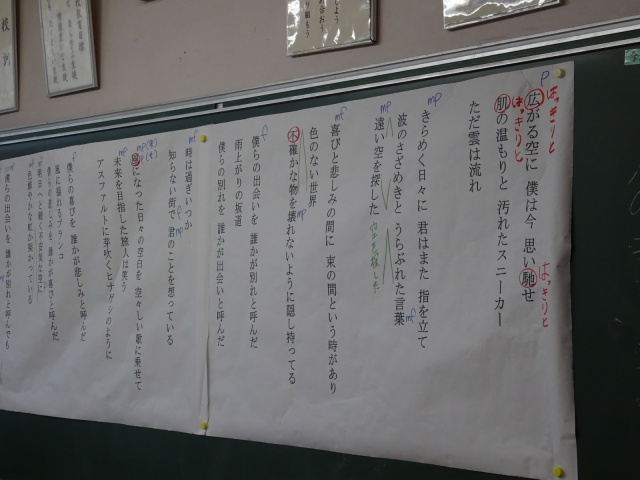 はっきりと
p
広がる空に 僕は今 思い馳せ
はっきりと
はっきりと
肌の温もりと 汚れたスニーカー
ただ雲は流れ
mp
きらめく日々に 君はまた 指を立て
波のさざめきと うらぶれた言葉
mf
mp
遠い空を探した
mf
喜びと悲しみの間に 束の間という時があり
色のない世界
不確かな物を壊れないように隠し持ってる
mp
f
僕らの出会いを 誰かが別れと呼んだ
雨上がりの坂道
僕らの別れを 誰かが出会いと呼んだ
mf
時は過ぎいつか
知らない街で 君のことを思っている
mp
風になった日々の空白を 空々しい歌に乗せて
mp
未来を目指した旅人は笑う
アスファルトに芽吹くヒナゲシのように
f
僕らの喜びを 誰かが悲しみと呼んだ
風に揺れるブランコ
僕らの悲しみを 誰かが喜びと呼んだ
明日へと続く不安気な空に
色鮮やかな虹が架かっている
僕らの出会いを 誰かが別れと呼んでも